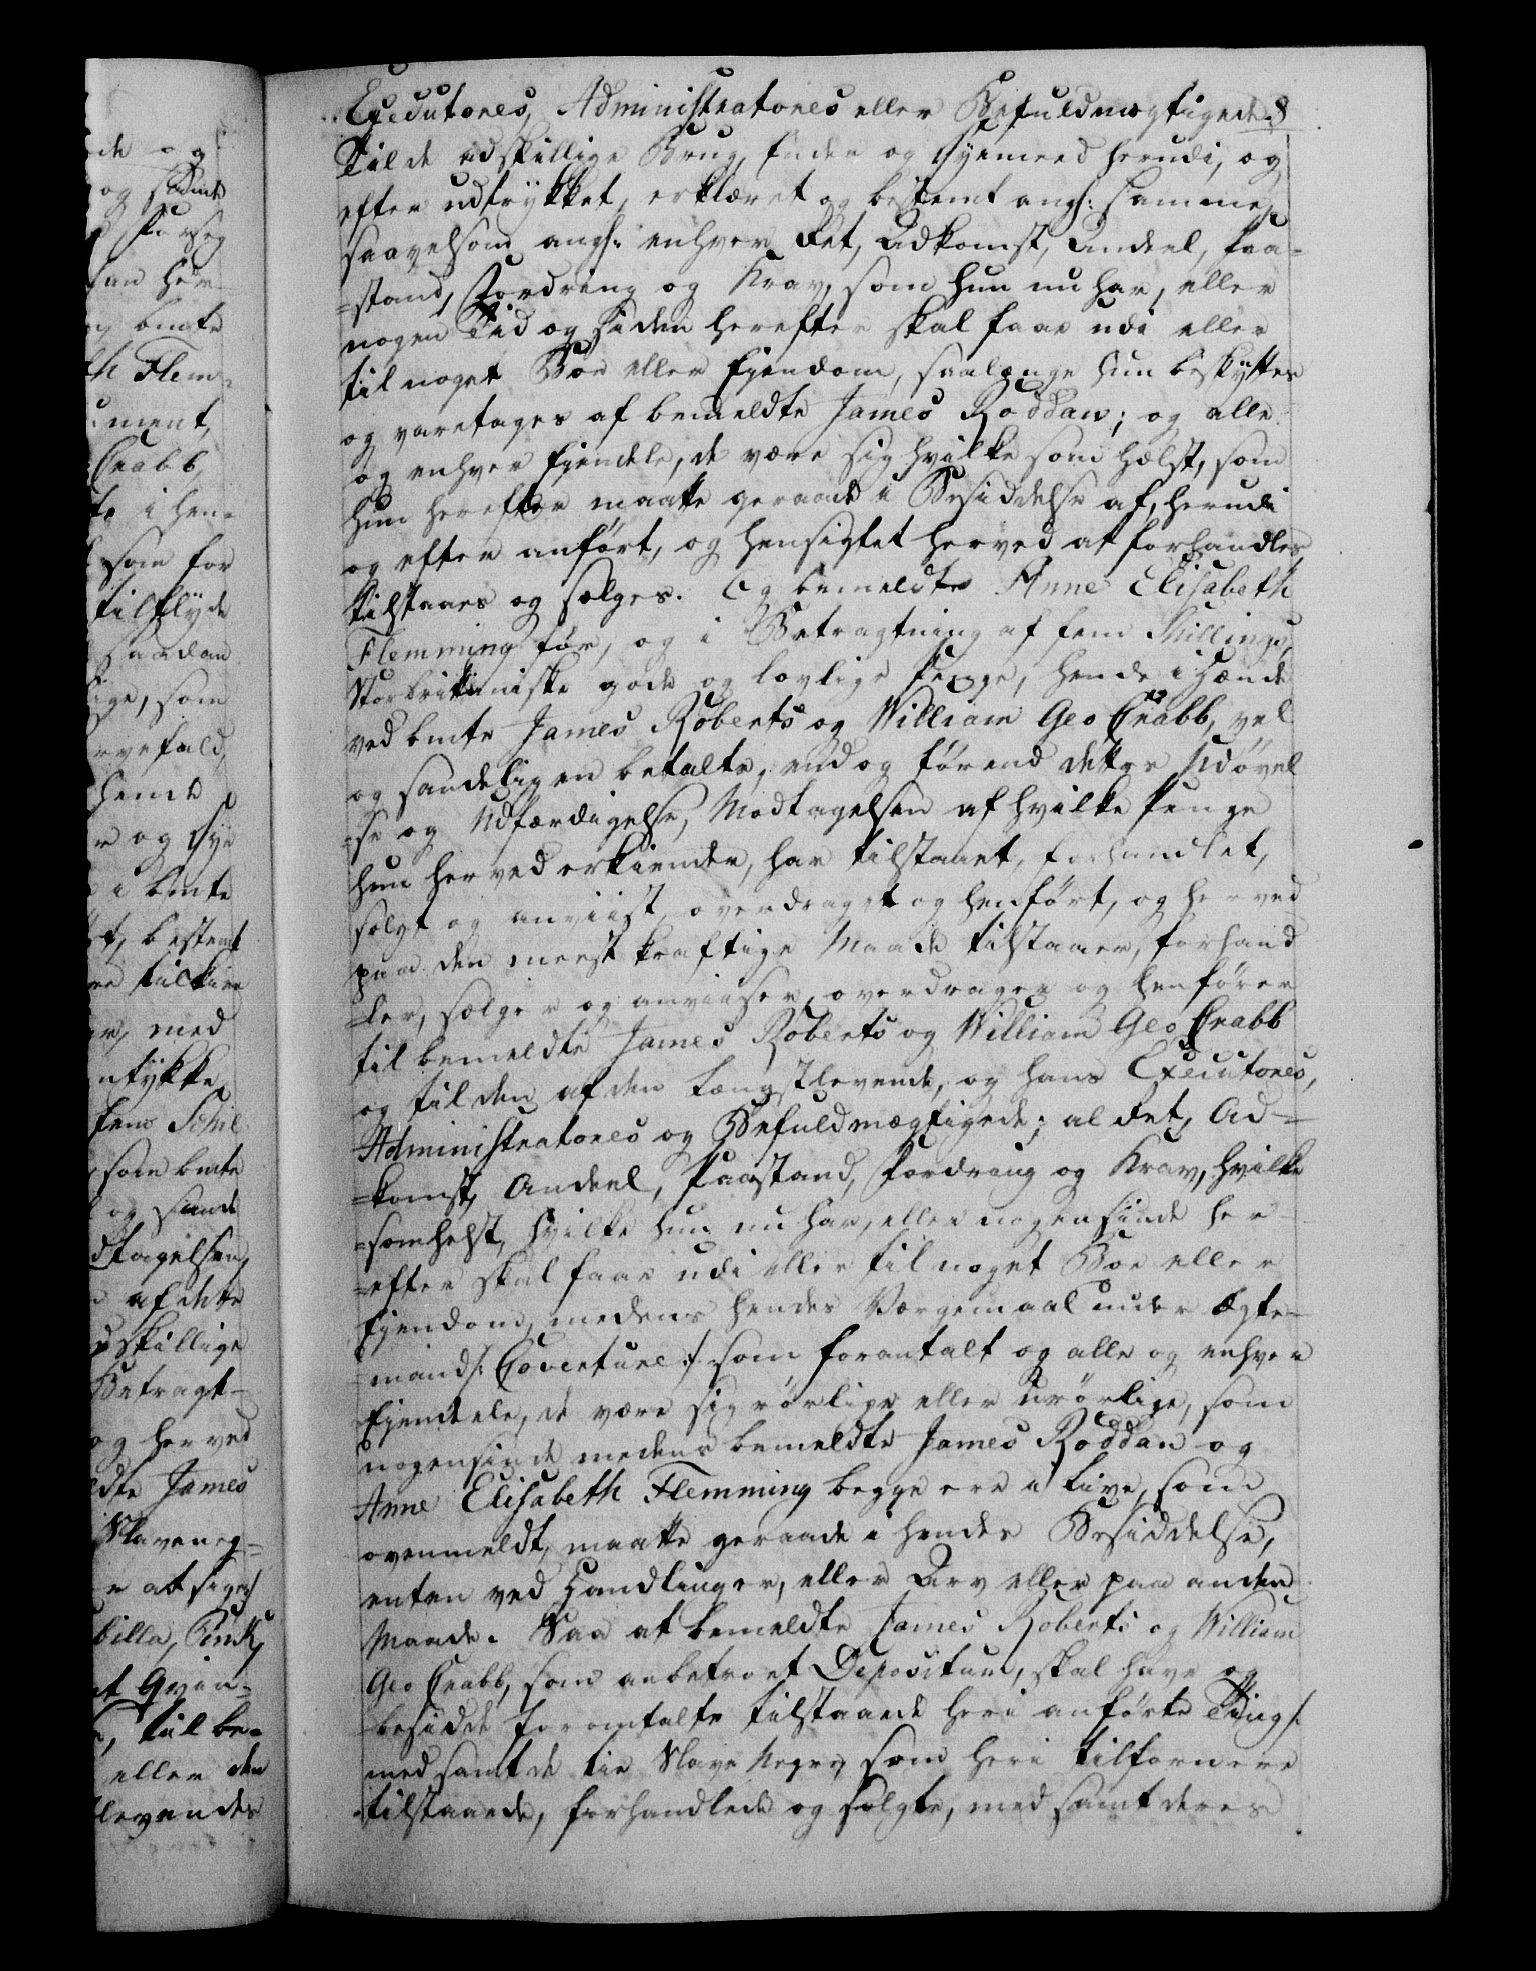 Executores, Administratores eller Befuldmægtigede.
Til de adskillige Brug, Ender og Øyemeed herudi, og
efter udtrykket, erklæret og bestemt angl: samme,
saavelsom angl: enhver Ret, Adkomst, Andeel, Paa-
=stand, Fordring og Krav, som hun nu har, eller
nogen Tid og siden herefter skal faae udi eller
til noget Boe eller Ejendom, saalænge hun beskyttes
og varetages af bemeldte James Roddan; og alle
og enhver Ejendele, de være sig hvilke som hælst, som
hun herefter maatte geraade i Besiddelse af, herudi
og efter anført, og hensigtet herved at forhandles,
tilstaaes og sælges. Og bemeldte Anne Elisabeth
Flemming for, og i Betragtning af fem Skillinge,
Storbritanniske gode og lovlige Penge, hende i Hænde
ved bmte James Roberts og William Geo Crabb, vel
og sandeligen betalte, end og førend dettes Udøvel
=se og Udfærdigelse, Modtagelsen af hvilke Penge
hun herved erkiender, har tilstaaet, forhandlet,
solgt og anviist, overdraget og henført, og herved
paa den meest kraftige Maade tilstaaer, forhand
=ler, sælger og anviiser, overdrager og henfører
til bemeldte James Roberts og William Geo Crabb
og til den af dem længstlevende, og hans Executores,
Administratores og Befuldmægtigede; al Ret, Ad-
=komst, Andeel, Paastand, Fordring og Krav, hvilke
=somhelst, hvilke hun nu har, eller nogensinde her-
=efter skal faae udi eller til noget Boe eller
Ejendom, medens hendes Værgemaal under Ægte-
=mand /: Coverture :/ som forantalt og alle og enhver
Ejendele, de være sig rørlige eller urørlige, som
nogensinde medens bemeldte James Roddan og
Anne Elisabeth Flemming begge ere i Live, som
ovenmeldt, maatte geraade i hendes Besiddelse,
enten ved Handlinger, eller Arv eller paa anden
Maade. Saa at bemeldte James Roberts og William
Geo Crabb, som anbetroet Depositum, skal have og
besidde foromtalte tilstaaede heri anførte Ting /:
med samt de tie Slave Negere, som heri tilfornere
tilstaaede, forhandlede og solgte, med samt deres